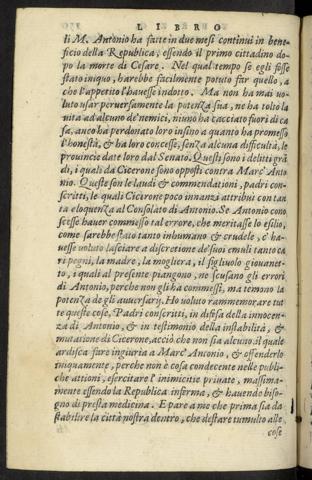 LIBRO
li M. Antonio ha fatte in due mesi continui in bene-
ficio della Republica, essendo il primo cittadino do-
po la morte di Cesare. Nel qual tempo se egli fosse
stato iniquo, harebbe facilmente potuto far quello, a
che l'appetito l'hauesse indotto. Ma non ha mai uo-
luto usar peruersamente la potenza sua, ne ha tolto la
uita ad alcuno de' nemici, niuno ha cacciato fuori di ca
sa, anco ha perdonato loro insino a quanto ha promesso
l'honestà, & ha loro concesse, senza alcuna difficultà, le
prouincie date loro dal Senato. Questi sono i delitti grã
di, i quali da Cicerone sono opposti contra Marc' Anto
nio. Queste son le laudi & commendationi, padri con-
scritti, le quali Cicerone poco innanzi attribuì con tan
ta eloquenza al Consolato di Antonio. Se Antonio cono
scesse hauer commesso tal errore, che meritasse lo esilio,
come sarebbe stato tanto inhumano & crudele, c'ha-
uesse uoluto lasciare a discretione de' suoi emuli tanto ca
ri pegni, la madre, la mogliera, il figliuolo giouanet-
to, i quali al presente piangono, ne scusano gli errori
di Antonio, perche non gli ha commessi, ma temono la
potenza de gli auuersarij. Ho uoluto rammemorare tut
te queste cose, Padri conscritti, in difesa della innocen-
za di Antonio, & in testimonio della instabilità, &
mutatione di Cicerone, acciò che non sia alcuno, il quale
ardisca fare ingiuria a Marc' Antonio, & offenderlo
iniquamente, perche non è cosa condecente nelle publi-
che attioni, esercitare l'inimicitie priuate, massima-
mente essendo la Republica inferma, & hauendo biso-
gno di presta medicina. E pare a me che prima sia da
stabilire la città nostra dentro, che destare tumulto alle
cose